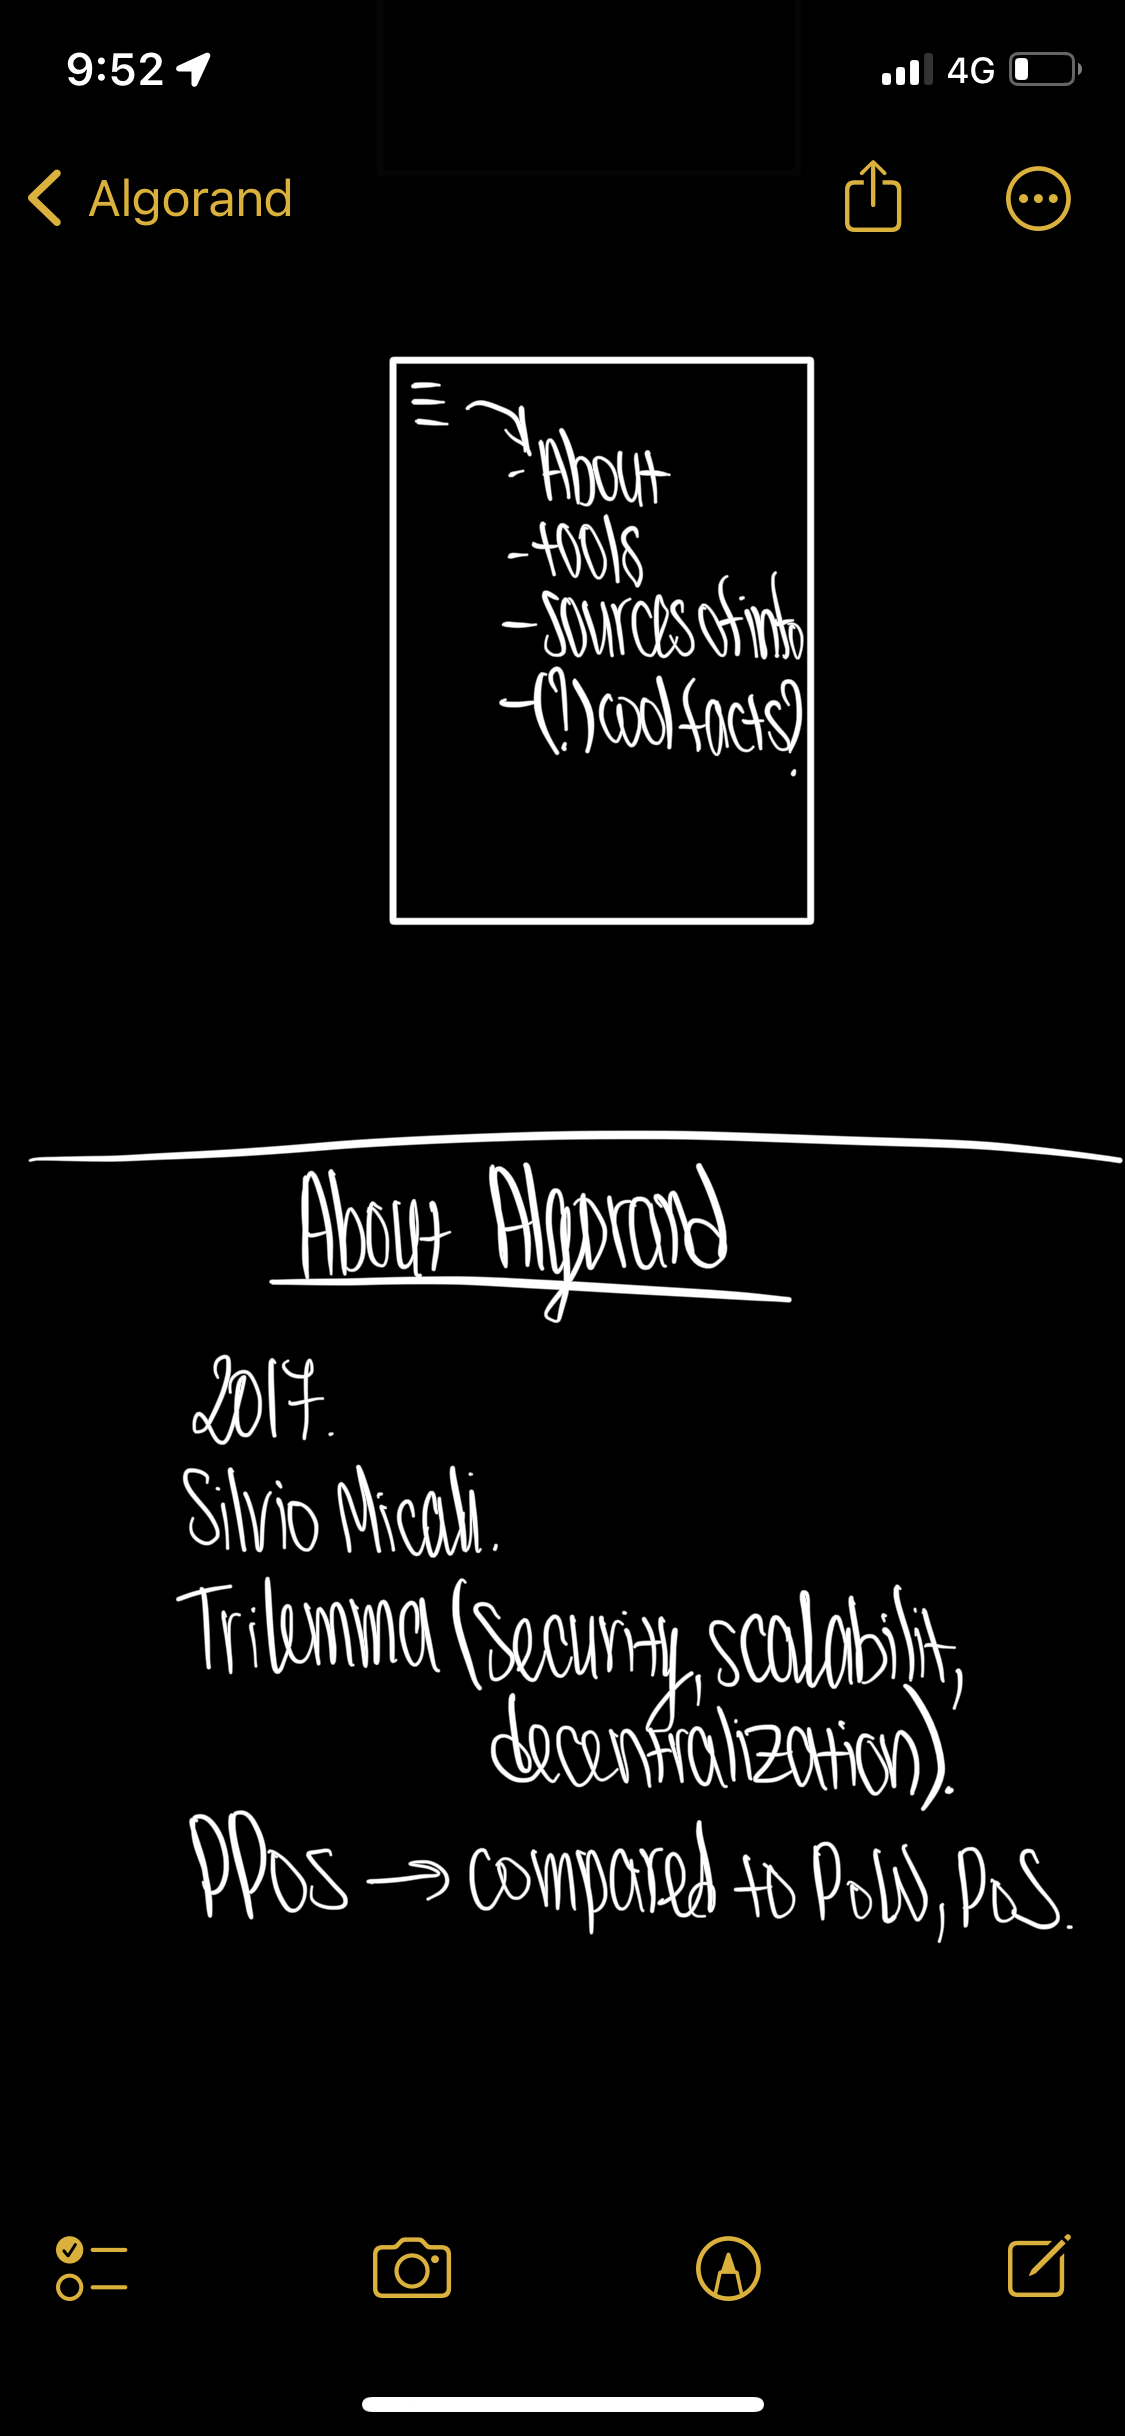 9:52
4G
Algorand
- About
- tools
- sources of info
- (?) cool facts?
About Algorand
2017.
Silvio Micali.
Trilemma (security, scalabilit,
decentralization).
PPoS → compared to PoW, PoS.